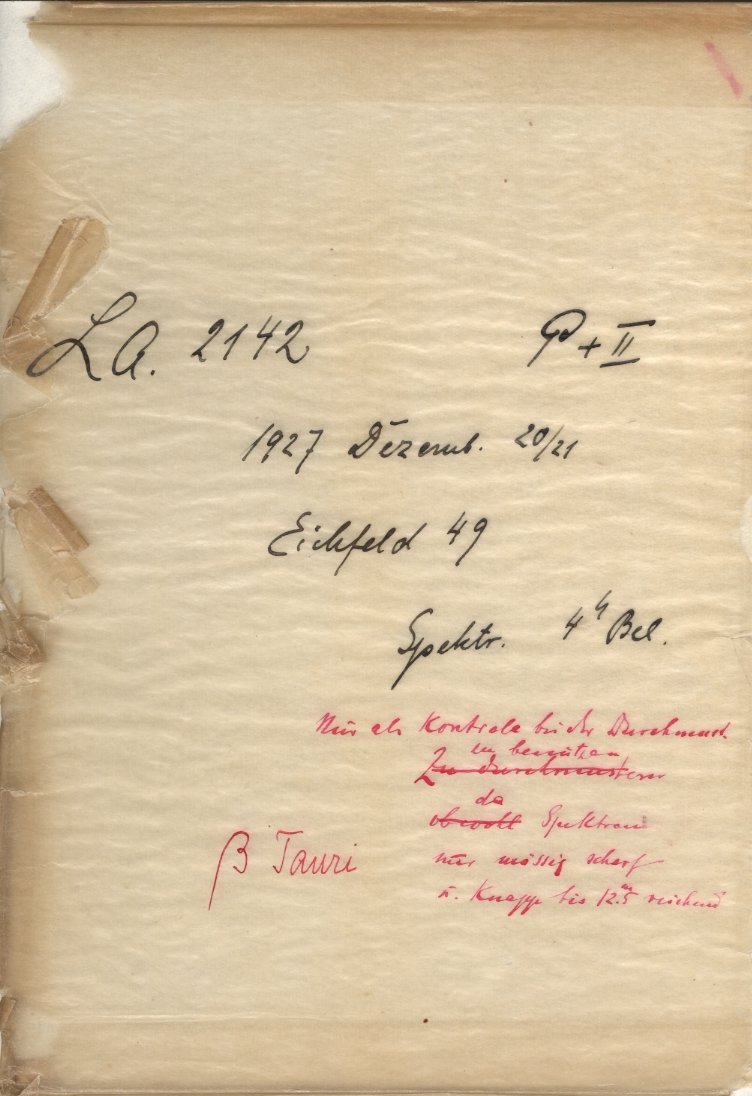 LA. 2142 P + II
1927 Dezemb. 20/21
Eichfeld 49
Spektr. 4ʰ Bel.
Nur als Kontrole bei der Durchmust.
zu benützen
Zu durchmustern
da
obwohl Spektren
nur mässig scharf
u. Knapp bis 12.ᵐ5 reichend
β Tauri